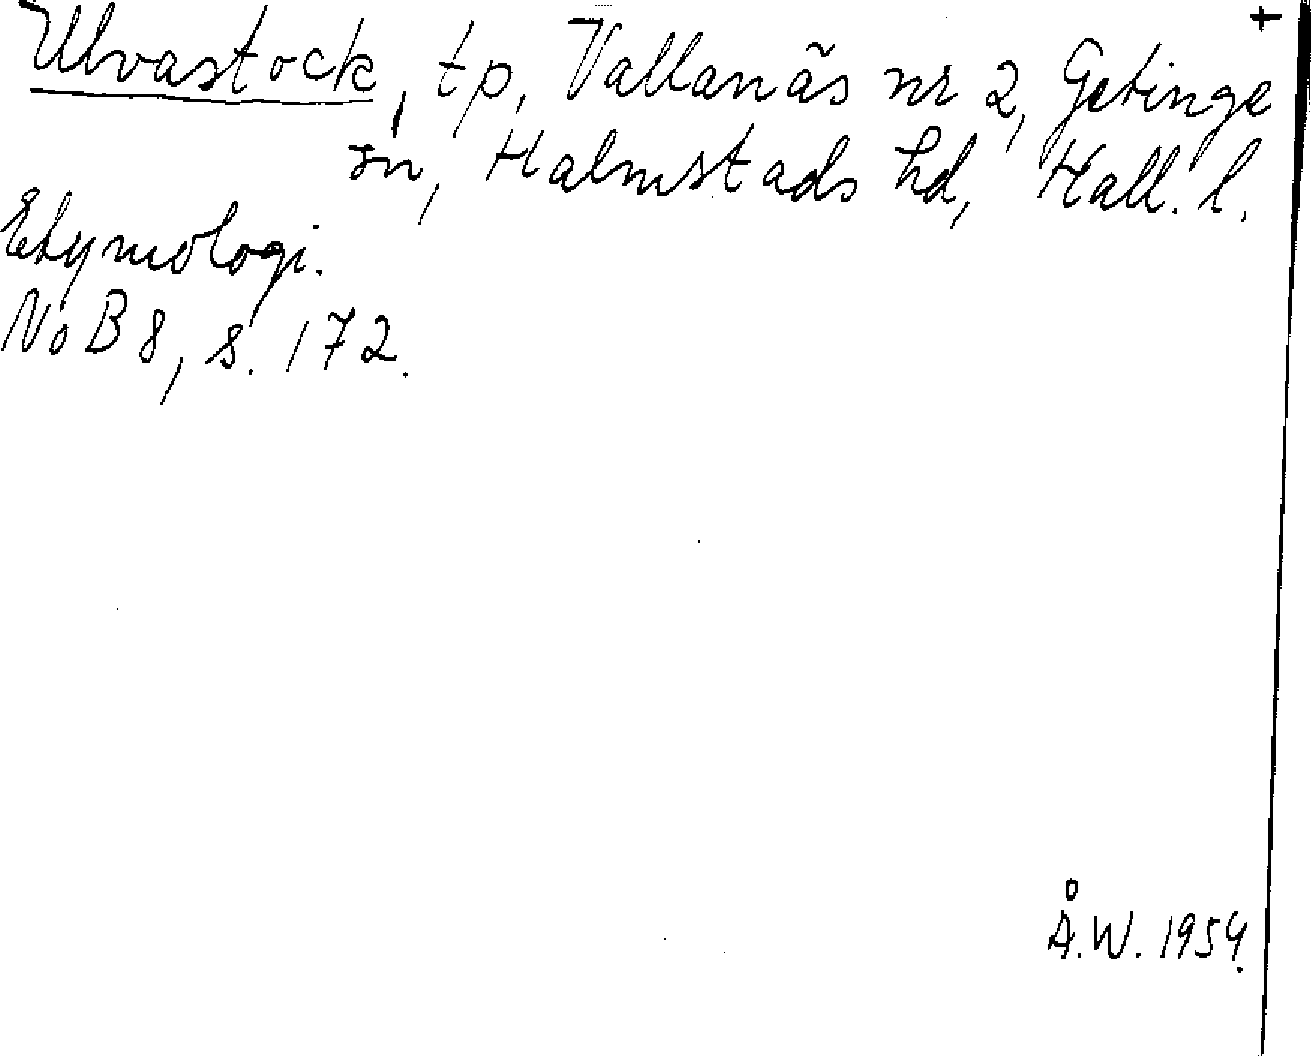 +
Ulvastock, tp, Vallanäs nr 2, Getinge
sn, Halmstads hd, Hall. l.
Etymologi.
NoB 8, s. 172.
Å.W. 1954.